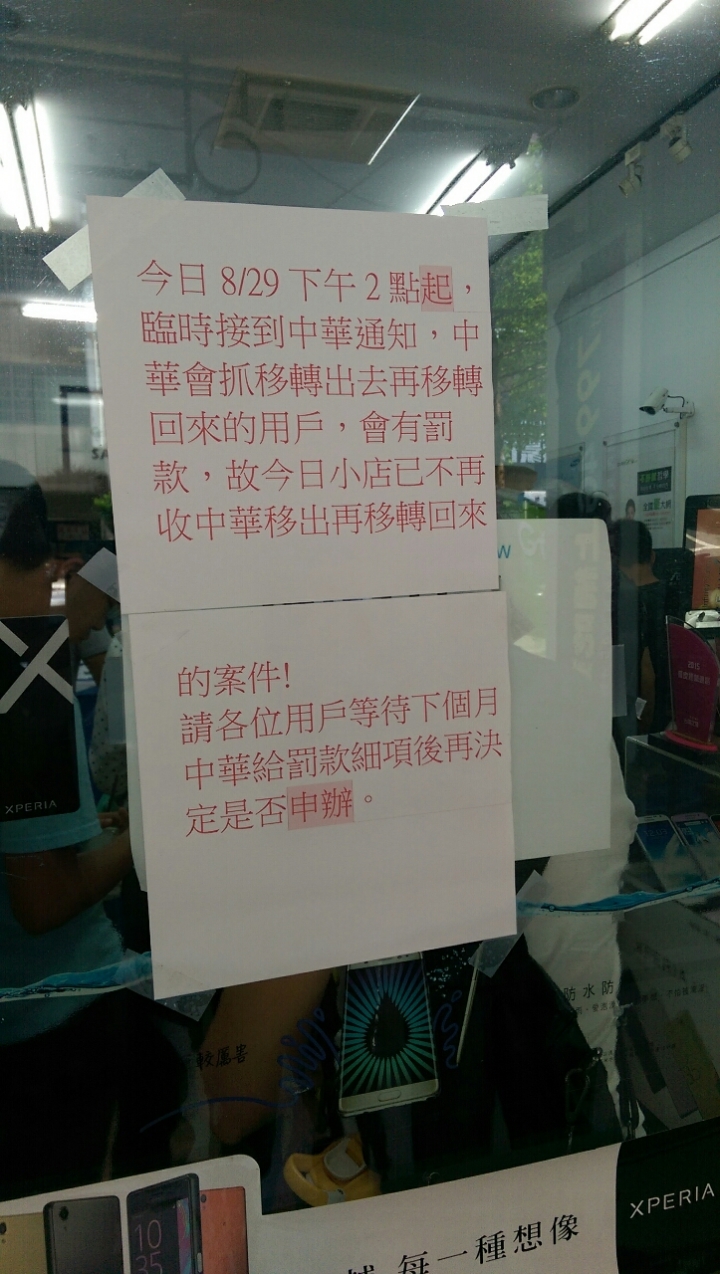 今日 8/29 下午 2 點起，
臨時接到中華通知，中
華會抓移轉出去再移轉
回來的用戶，會有罰
款，故今日小店已不再
收中華移出再移轉回來
的案件!
請各位用戶等待下個月
中華給罰款細項後再決
定是否申辦。
XPERIA
防水防
10
35
每一種想像
XPERIA